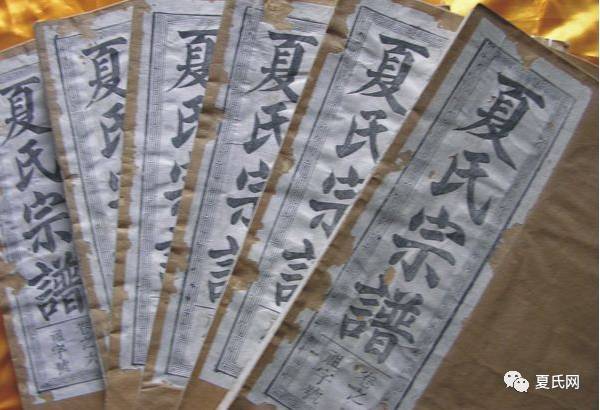 夏氏宗譜
字號
夏氏宗
夏氏宗
夏氏宗譜
夏氏宗譜
夏氏宗譜
字號
夏氏网